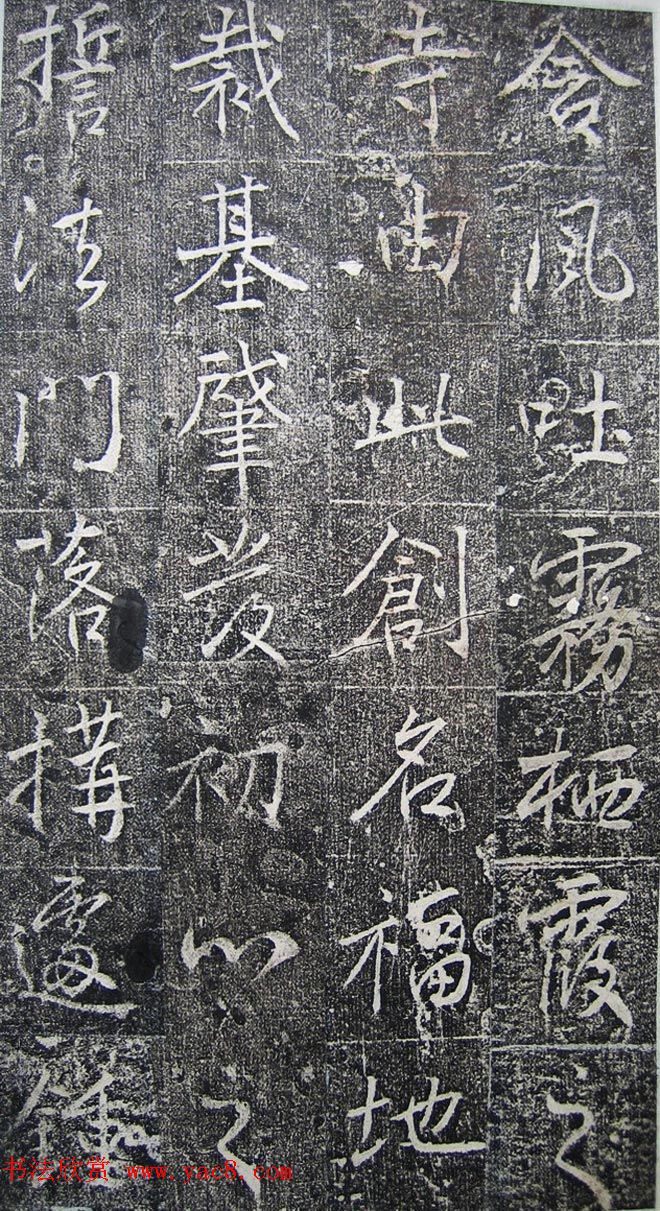 含風吐霧栖霞之
寺由此創名福地
裁基肇發初心之
誓法門落構遽鍾
书法欣赏 www.yac8.com